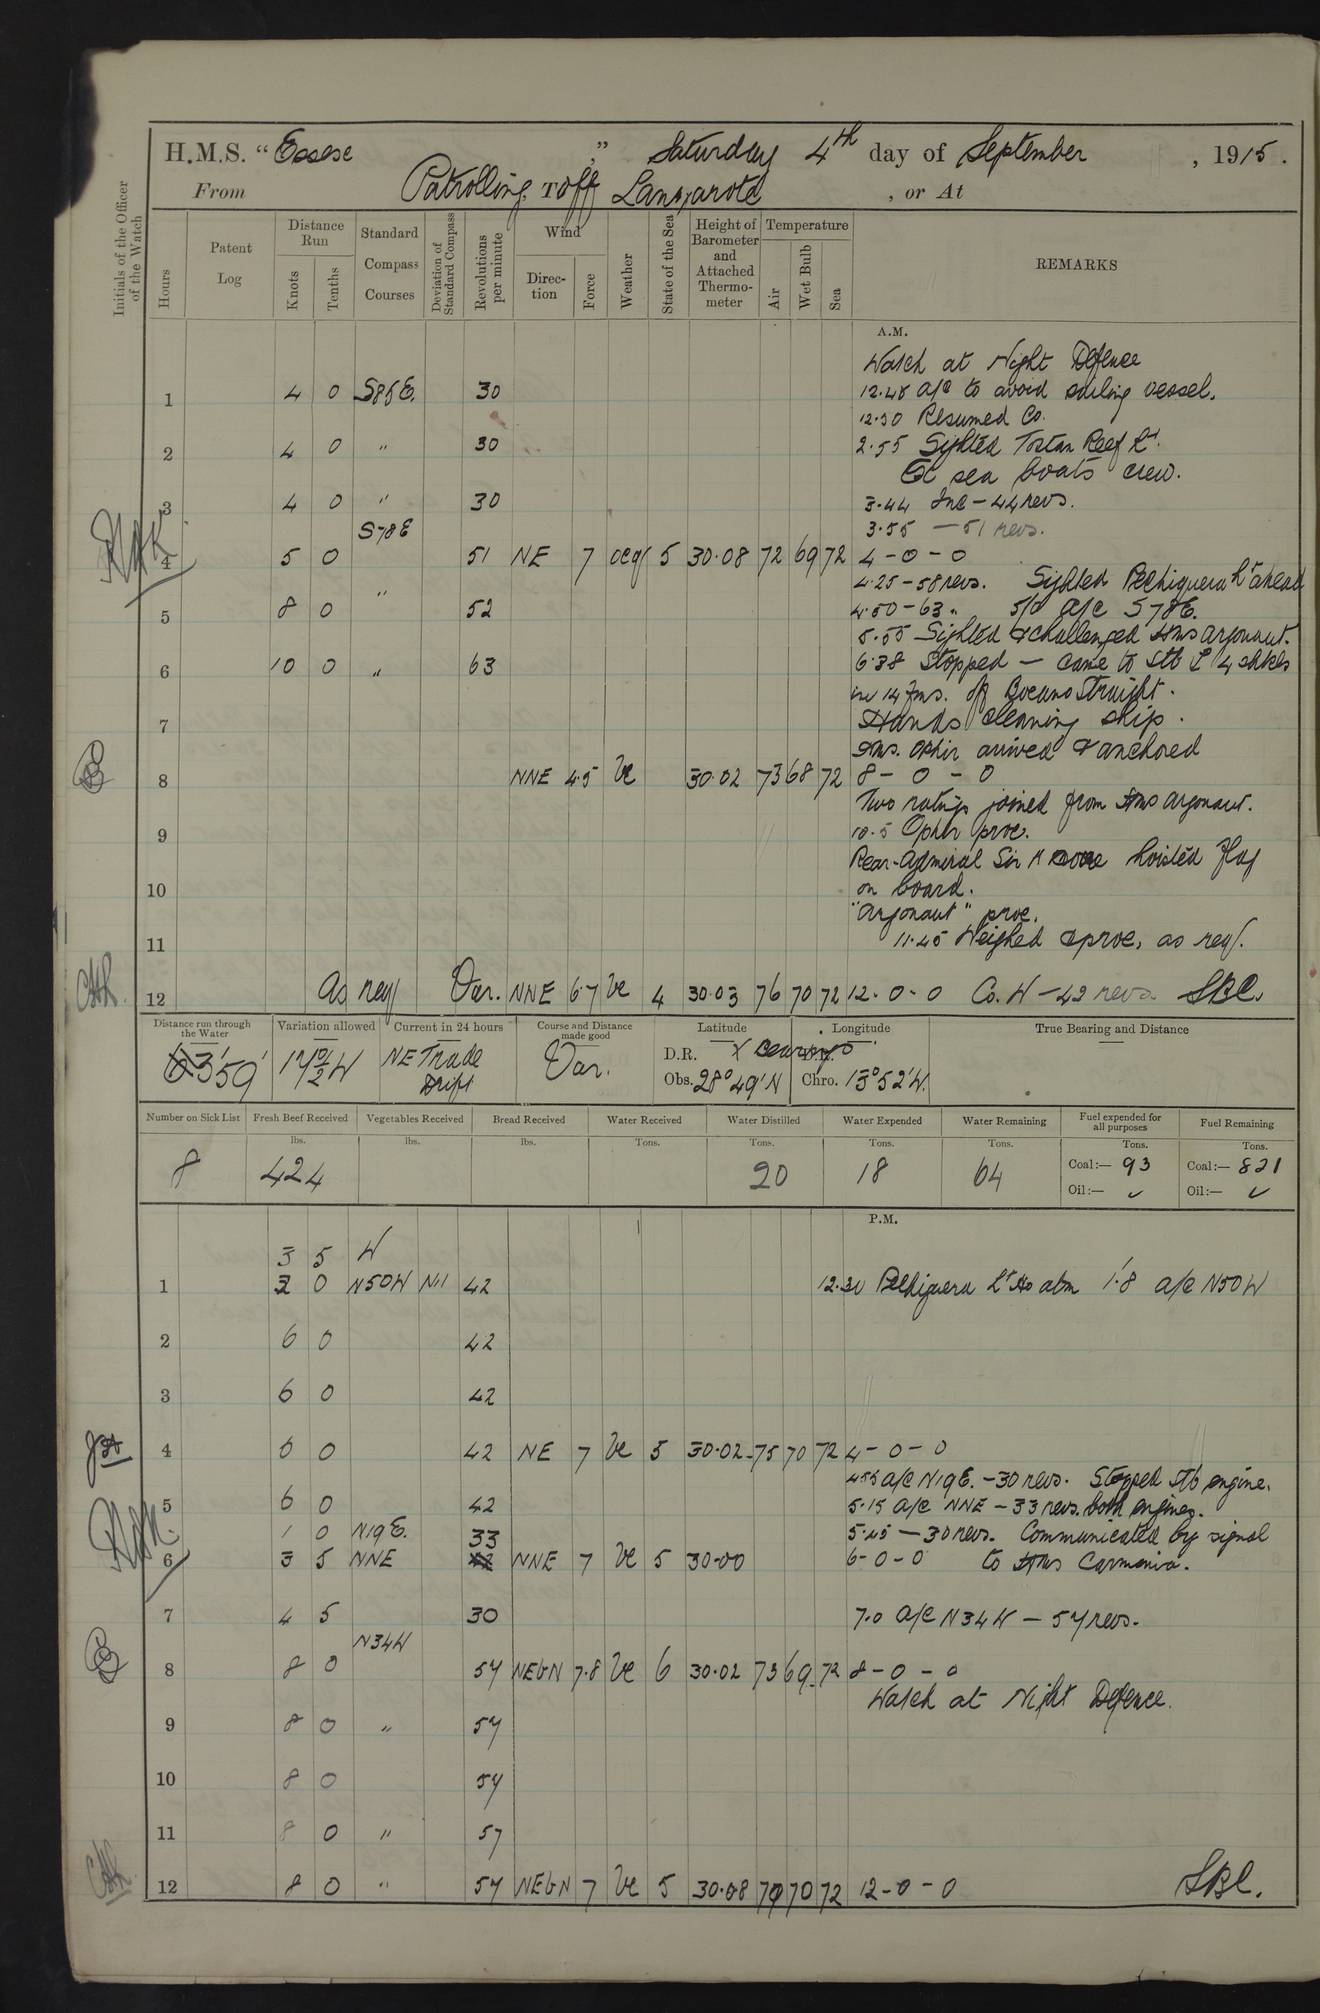 H.M.S. " Essex ," Saturday 4th day of September , 1915 .
From Patrolling To off Lanzarote , or At
Initials of the Officer of the Watch
Hours
Patent Log
Distance Run
Knots
Tenths
Standard Compass Courses
Deviation of Standard Compass
Revolutions per minute
Wind
Direction
Force
Weather
State of the Sea
Height of Barometer and Attached Thermometer
Temperature
Air
Wet Bulb
Sea
REMARKS
A.M.
Watch at Night Defence
1 4 0 S85E. 30 12.48 a/c to avoid sailing vessel.
12.50 Resumed Co.
2 4 0 " 30 2.55 Sighted Tostan Reef Lt.
Ex sea boats crew.
3 4 0 " 30 3.44 Inc - 44 revs.
S78E 3.55 - 51 revs.
4 5 0 51 NE 7 ocq 5 30.08 72 69 72 4 - 0 - 0
4.25 - 58 revs. Sighted Pechiguera Lt ahead
5 8 0 " 52 4.50 - 63 " 5/0 a/c S78E.
5.55 Sighted & challenged HMS Argonaut.
6 10 0 " 63 6.38 Stopped - came to Stb 4 shkls
in 14 fms. off Bocano Straight.
7 Hands cleaning ship.
HMS. Ophir arrived & anchored
8 NNE 4.5 bc 30.02 73 68 72 8 - 0 - 0
Two ratings joined from HMS Argonaut.
9 10.5 Ophir proc.
Rear-Admiral Sir A Moore hoisted flag
10 on board.
"Argonaut" proc.
11 11.45 Weighed & proc, as req.
12 As req Var. NNE 6.7 bc 4 30.03 76 70 72 12 - 0 - 0 Co. W - 42 revs. SBC.
Distance run through the Water
Variation allowed
Current in 24 hours
Course and Distance made good
Latitude
Longitude
True Bearing and Distance
63' 59' 17½°W NE Trade Drift Var. D.R. X Bearings D.R.
Obs. 28° 49' N Chro. 13° 52' W.
Number on Sick List
Fresh Beef Received
Vegetables Received
Bread Received
Water Received
Water Distilled
Water Expended
Water Remaining
Fuel expended for all purposes
Fuel Remaining
lbs. lbs. lbs. Tons. Tons. Tons. Tons. Tons. Tons.
8 424 20 18 64 Coal:— 93 Coal:— 821
Oil:— ✓ Oil:— ✓
P.M.
3 5 W
1 2 0 N50W Nil 42 12.30 Pechiguera Lt Ho abm 1'.8 a/c N50W
2 6 0 42
3 6 0 42
4 6 0 42 NE 7 bc 5 30.02 75 70 72 4 - 0 - 0
4.55 a/c N19E. - 30 revs. Stopped Stb engine.
5 6 0 42 5.15 a/c NNE - 33 revs. both engines.
1 0 N19E. 33 5.45 - 30 revs. Communicated by signal
6 3 5 NNE NNE 7 bc 5 30.00 6 - 0 - 0 to HMS Carmania.
7 4 5 30 7.0 a/c N34W - 57 revs.
N34W
8 8 0 57 NEbN 7.8 bc 6 30.02 73 69 72 8 - 0 - 0
Watch at Night Defence.
9 8 0 " 57
10 8 0 57
11 8 0 " 57
12 8 0 " 57 NEbN 7 bc 5 30.08 70 70 72 12 - 0 - 0 SBC.